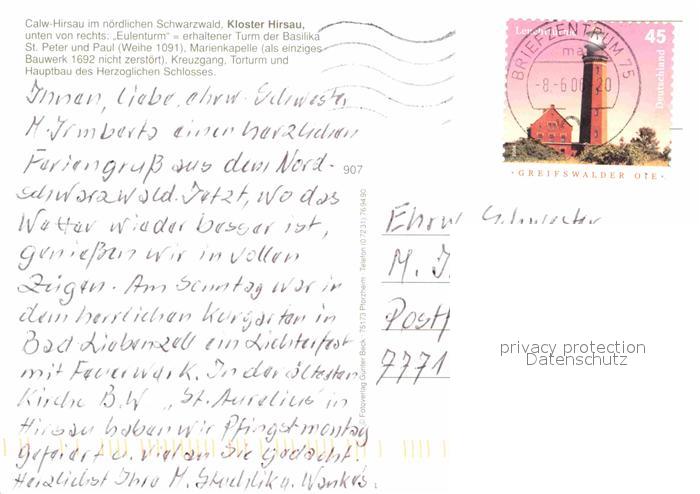 Calw-Hirsau im nördlichen Schwarzwald, Kloster Hirsau,
unten von rechts: „Eulenturm" = erhaltener Turm der Basilika
St. Peter und Paul (Weihe 1091), Marienkapelle (als einziges
Bauwerk 1692 nicht zerstört), Kreuzgang, Torturm und
Hauptbau des Herzoglichen Schlosses.
Ihnen, liebe, ehrw. Schwester
M. Irmberta einen herzlichen
Feriengruß aus dem Nord-
schwarzwald. Jetzt, wo das
Wetter wieder besser ist,
genießen wir in vollen
Zügen. Am Sonntag war in
dem herrlichen Kurgarten in
Bad Liebenzell ein Lichterfest
mit Feuerwerk. In der ältesten
Kirche B.W „St. Aurelius" in
Hirsau haben wir Pfingstmontag
gefeiert u. viel an Sie gedacht.
Herzlichst Ihre M.
907
© Fotoverlag Günter Beck · 75173 Pforzheim · Telefon (0 72 31) 76 94 90
Leuchttürme
45
Deutschland
BRIEFZENTRUM 75
ma
-8.-6.06 20
· GREIFSWALDER OIE ·
Ehrw Schwester
M. I
Post
7771
privacy protection
Datenschutz